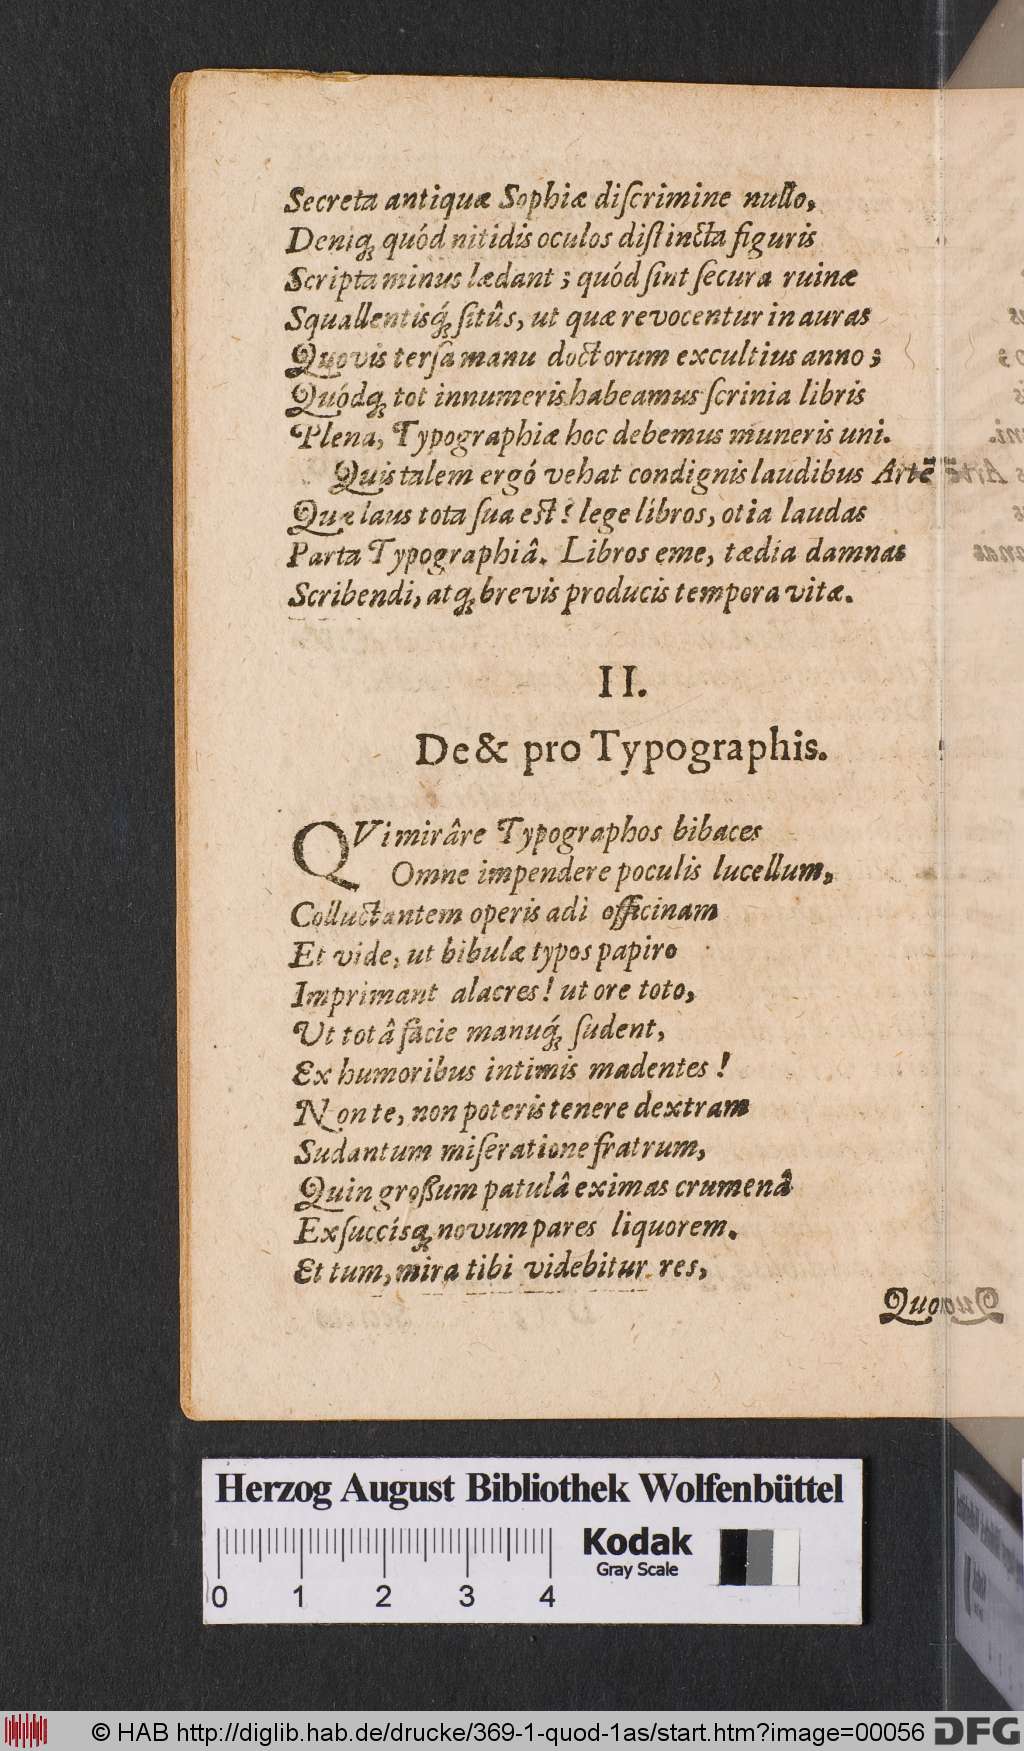 Secreta antiquæ Sophiæ diſcrimine nullo,
Deniq; quód nitidis oculos diſtincta figuris
Scripta minus lædant ; quód ſint ſecura ruinæ
Squallentisq́; ſitûs, ut quæ revocentur in auras
Quovis terſa manu doctorum excultius anno ;
Quódq; tot innumeris habeamus ſcrinia libris
Plena, Typographiæ hoc debemus muneris uni.
Quis talem ergó vehat condignis laudibus Artē
Quæ laus tota ſua est? lege libros, otia laudas
Parta Typographiâ. Libros eme, tædia damnas
Scribendi, atq; brevis producis tempora vitæ.
II.
De & pro Typographis.
QVi mirâre Typographos bibaces
Omne impendere poculis lucellum,
Colluctantem operis adì officinam
Et vide, ut bibulæ typos papiro
Imprimant alacres! ut ore toto,
Ut totâ facie manuq́; ſudent,
Ex humoribus intimis madentes !
Non te, non poteris tenere dextram
Sudantum miſeratione fratrum,
Quin großum patulâ eximas crumenâ
Exſuccisq; novum pares liquorem.
Et tum, mira tibi videbitur res,
Quo
Herzog August Bibliothek Wolfenbüttel
Kodak
Gray Scale
0 1 2 3 4
© HAB http://diglib.hab.de/drucke/369-1-quod-1as/start.htm?image=00056 DFG